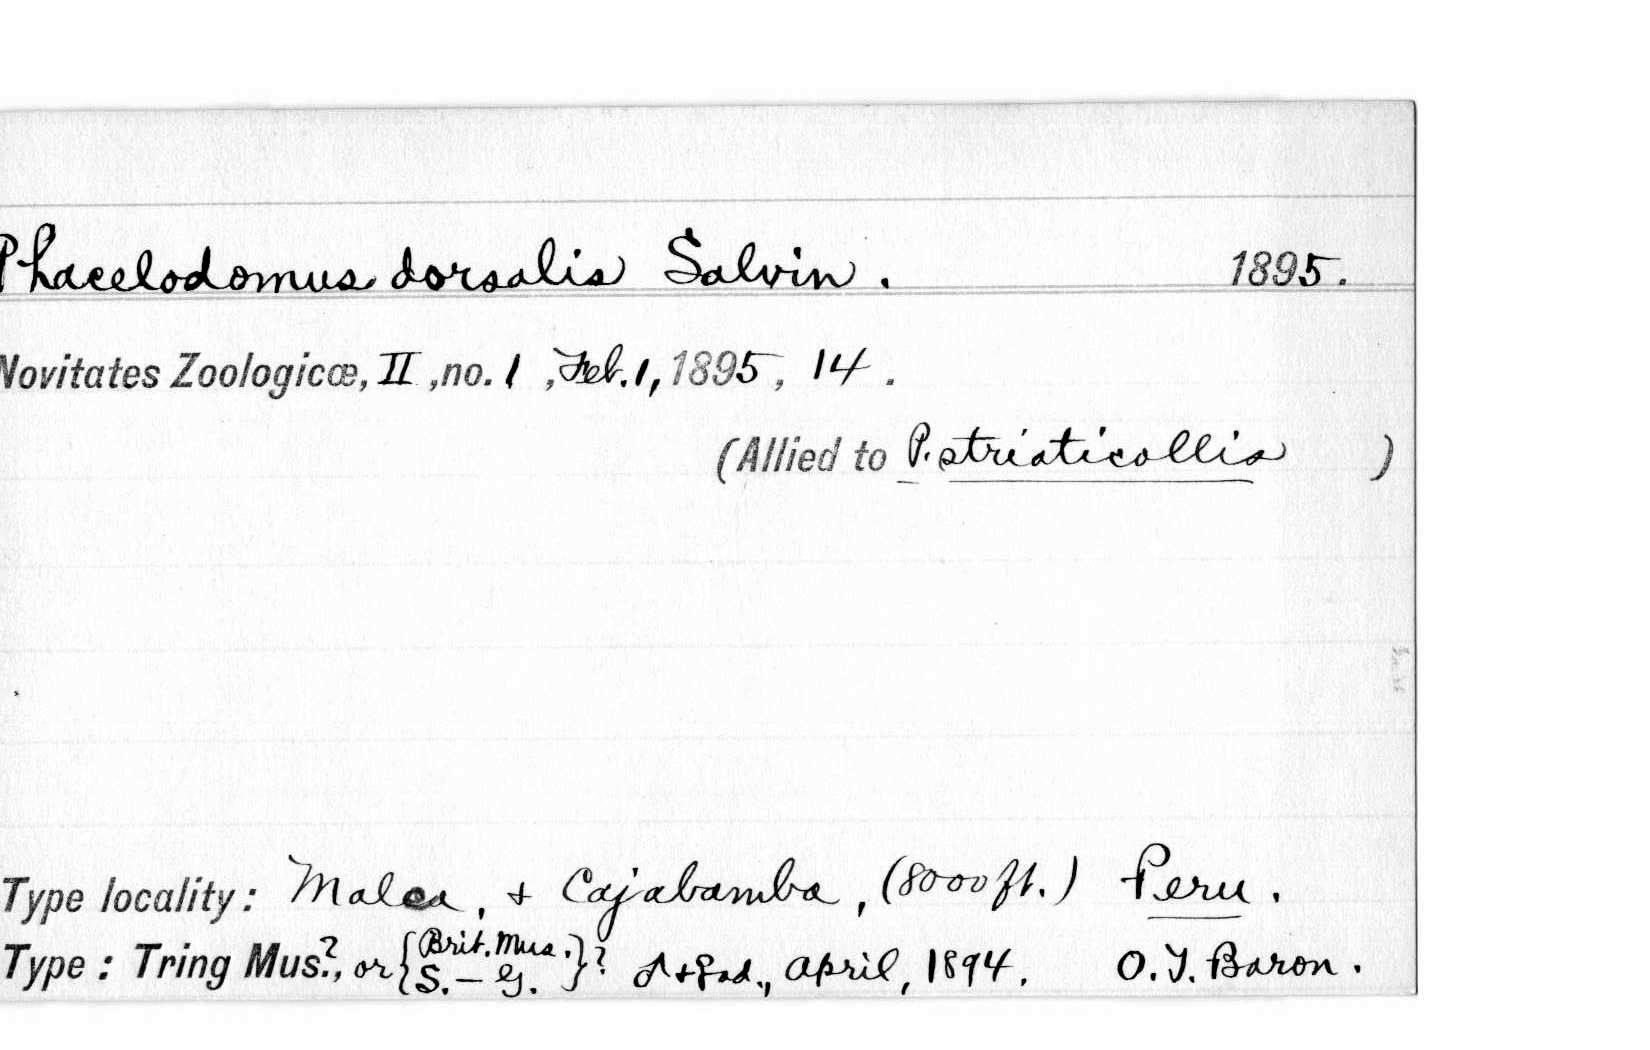 Phacelodomus dorsalis Salvin. 1895.
Novitates Zoologicæ, II, no. 1, Feb. 1, 1895, 14.
(Allied to P. striaticollis )
Type locality: Malca, & Cajabamba, (8000 ft.) Peru.
Type: Tring Mus.?, or {Brit. Mus. S.-G.}? ♂ & ♀ ad., April, 1894. O. T. Baron.